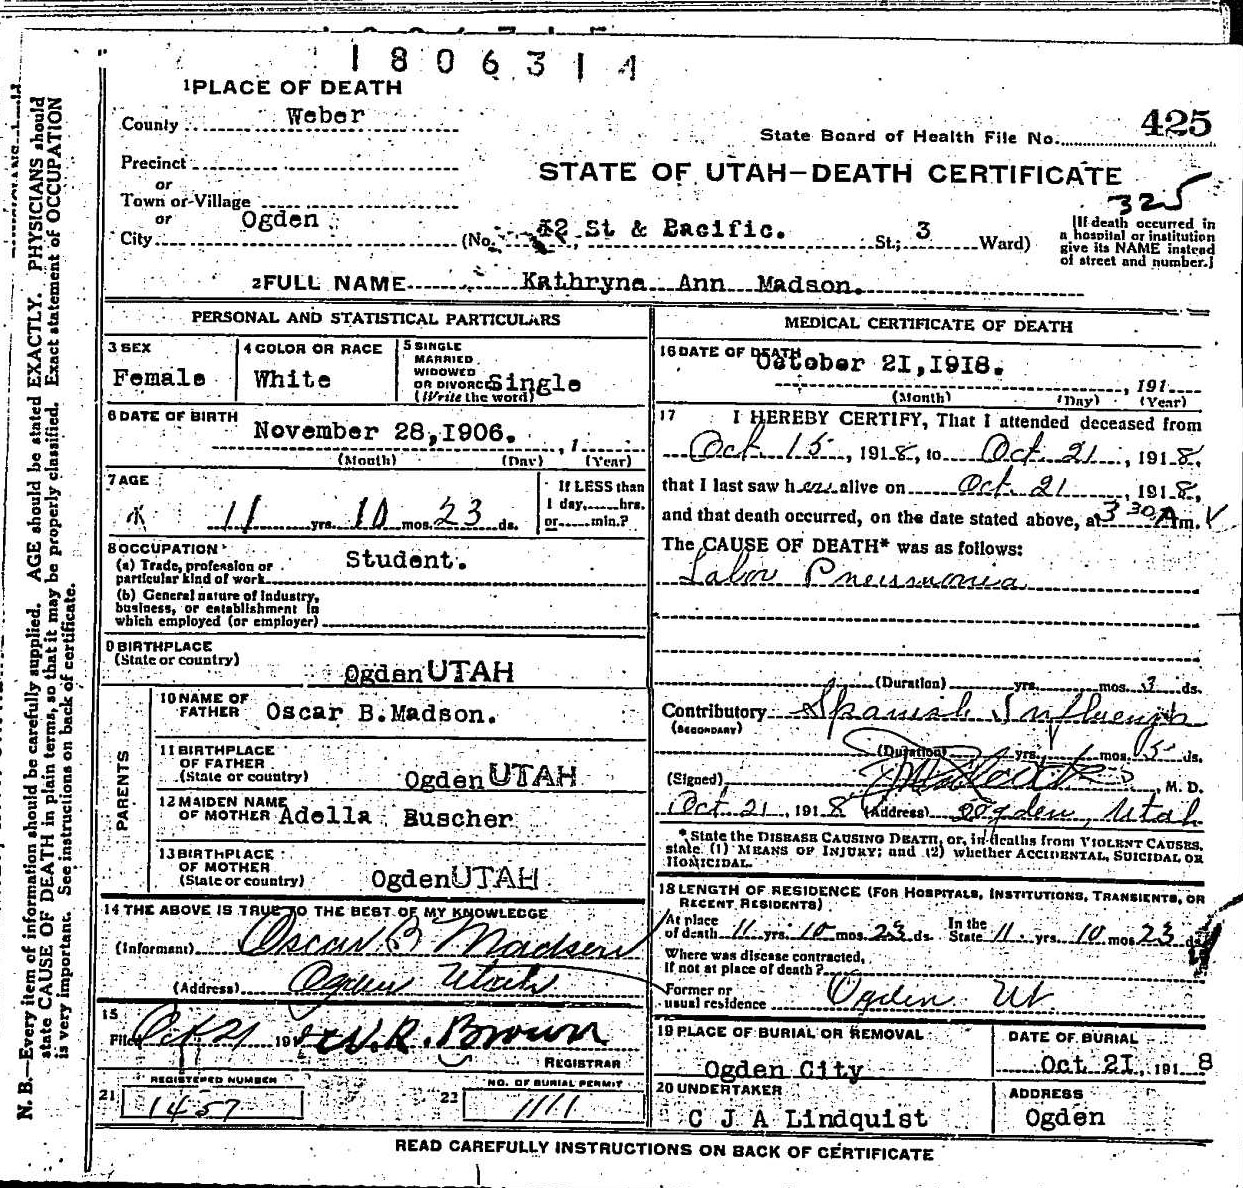 1806314
1 PLACE OF DEATH
County Weber
State Board of Health File No. 425
Precinct
or
STATE OF UTAH—DEATH CERTIFICATE
Town or Village
325
or
City Ogden (No. 12 St & Pacific. St.; 3 Ward)
[If death occurred in
a hospital or institution
give its NAME instead
of street and number.]
2 FULL NAME Kathryne Ann Madson.
PERSONAL AND STATISTICAL PARTICULARS
3 SEX
Female
4 COLOR OR RACE
White
5 SINGLE
MARRIED
WIDOWED
OR DIVORCED Single
(Write the word)
6 DATE OF BIRTH
November 28, 1906. , 1
(Month) (Day) (Year)
7 AGE
11 yrs. 10 mos. 23 ds.
If LESS than
1 day, hrs.
or min.?
8 OCCUPATION
(a) Trade, profession or
particular kind of work Student.
(b) General nature of Industry,
business, or establishment in
which employed (or employer)
9 BIRTHPLACE
(State or country)
Ogden UTAH
PARENTS
10 NAME OF
FATHER Oscar B. Madson.
11 BIRTHPLACE
OF FATHER
(State or country) Ogden UTAH
12 MAIDEN NAME
OF MOTHER Adella Buscher
13 BIRTHPLACE
OF MOTHER
(State or country) Ogden UTAH
14 THE ABOVE IS TRUE TO THE BEST OF MY KNOWLEDGE
(Informant) Oscar B Madsen
(Address) Ogden Utah
15
Filed Oct 21 191 W. R. Brown
REGISTRAR
21 REGISTERED NUMBER
1457
22 NO. OF BURIAL PERMIT
1111
MEDICAL CERTIFICATE OF DEATH
16 DATE OF DEATH
October 21, 1918.
, 191
(Month) (Day) (Year)
17 I HEREBY CERTIFY, That I attended deceased from
Oct 15, 1918, to Oct. 21, 1918,
that I last saw her alive on Oct. 21, 1918,
and that death occurred, on the date stated above, at 3 30 A m.
The CAUSE OF DEATH* was as follows:
Lobar Pneumonia
(Duration) yrs. mos. 3 ds.
Contributory Spanish Influenza
(SECONDARY)
(Duration) yrs. mos. 5 ds.
(Signed) , M. D.
Oct 21, 1918 (Address) Ogden, Utah
* State the DISEASE CAUSING DEATH, or, in deaths from VIOLENT CAUSES,
state (1) MEANS OF INJURY; and (2) whether ACCIDENTAL, SUICIDAL OR
HOMICIDAL.
18 LENGTH OF RESIDENCE (FOR HOSPITALS, INSTITUTIONS, TRANSIENTS, OR
RECENT RESIDENTS)
At place
of death 11 yrs. 10 mos. 23 ds.
In the
State 11 yrs. 10 mos. 23 ds.
Where was disease contracted,
If not at place of death?
Former or
usual residence Ogden Ut
19 PLACE OF BURIAL OR REMOVAL
Ogden City
DATE OF BURIAL
Oct 21, 1918
20 UNDERTAKER
C J A Lindquist
ADDRESS
Ogden
READ CAREFULLY INSTRUCTIONS ON BACK OF CERTIFICATE
N. B.—Every item of information should be carefully supplied. AGE should be stated EXACTLY. PHYSICIANS should
state CAUSE OF DEATH in plain terms, so that it may be properly classified. Exact statement of OCCUPATION
is very important. See instructions on back of certificate.